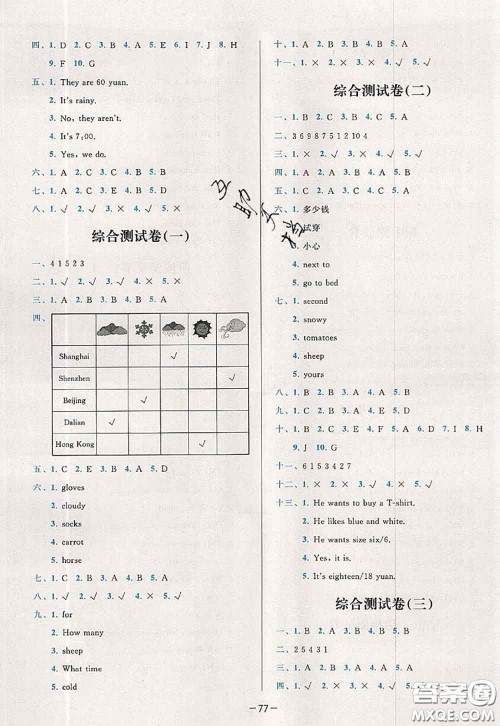 四、1. D 2. C 3. A 4. B 5. E 6. I 7. J 8. H
9. F 10. G
五、1. They are 60 yuan.
2. It's rainy.
3. No, they aren't.
4. It's 7:00.
5. Yes, we do.
六、1. C 2. A 3. D 4. B 5. A
七、1. D 2. A 3. B 4. C 5. E
八、1. √ 2. × 3. √ 4. √ 5. ×
综合测试卷(一)
一、4 1 5 2 3
二、1. √ 2. × 3. √ 4. × 5. √
三、1. A 2. B 3. C 4. B 5. A
四、
Shanghai √
Shenzhen √
Beijing √
Dalian √
Hong Kong √
五、1. C 2. E 3. B 4. A 5. D
六、1. gloves
2. cloudy
3. socks
4. carrot
5. horse
七、1. C 2. B 3. A 4. C 5. B
八、1. √ 2. √ 3. × 4. × 5. √
九、1. for
2. How many
3. sheep
4. What time
5. cold
十、1. A 2. B 3. B 4. C 5. A
十一、1. × 2. × 3. × 4. √ 5. √
综合测试卷(二)
一、1. C 2. B 3. C 4. A 5. B
二、3 6 9 8 7 5 12 10 4
三、1. × 2. √ 3. √ 4. × 5. √
四、1. C 2. D 3. B 4. E 5. A
五、1. C 2. A 3. C 4. B 5. A
六、1. 多少钱
2. 试穿
3. 小心
4. next to
5. go to bed
七、1. second
2. snowy
3. tomatoes
4. sheep
5. yours
八、1. B 2. A 3. B 4. C 5. B
九、1. B 2. B 3. A 4. C 5. A
十、1. B 2. A 3. C 4. E 5. D 6. I 7. F 8. H
9. J 10. G
十一、6 1 5 3 4 2 7
十二、1. × 2. √ 3. × 4. × 5. √
十三、1. He wants to buy a T-shirt.
2. He likes blue and white.
3. He wants size six/6.
4. Yes, it is.
5. It's eighteen/18 yuan.
综合测试卷(三)
一、1. C 2. B 3. A 4. B 5. A
二、2 5 4 3 1
三、1. × 2. × 3. √ 4. √ 5. √
四、1. A 2. B 3. C 4. A 5.
— 77 —
答案圈
MXQE.COM